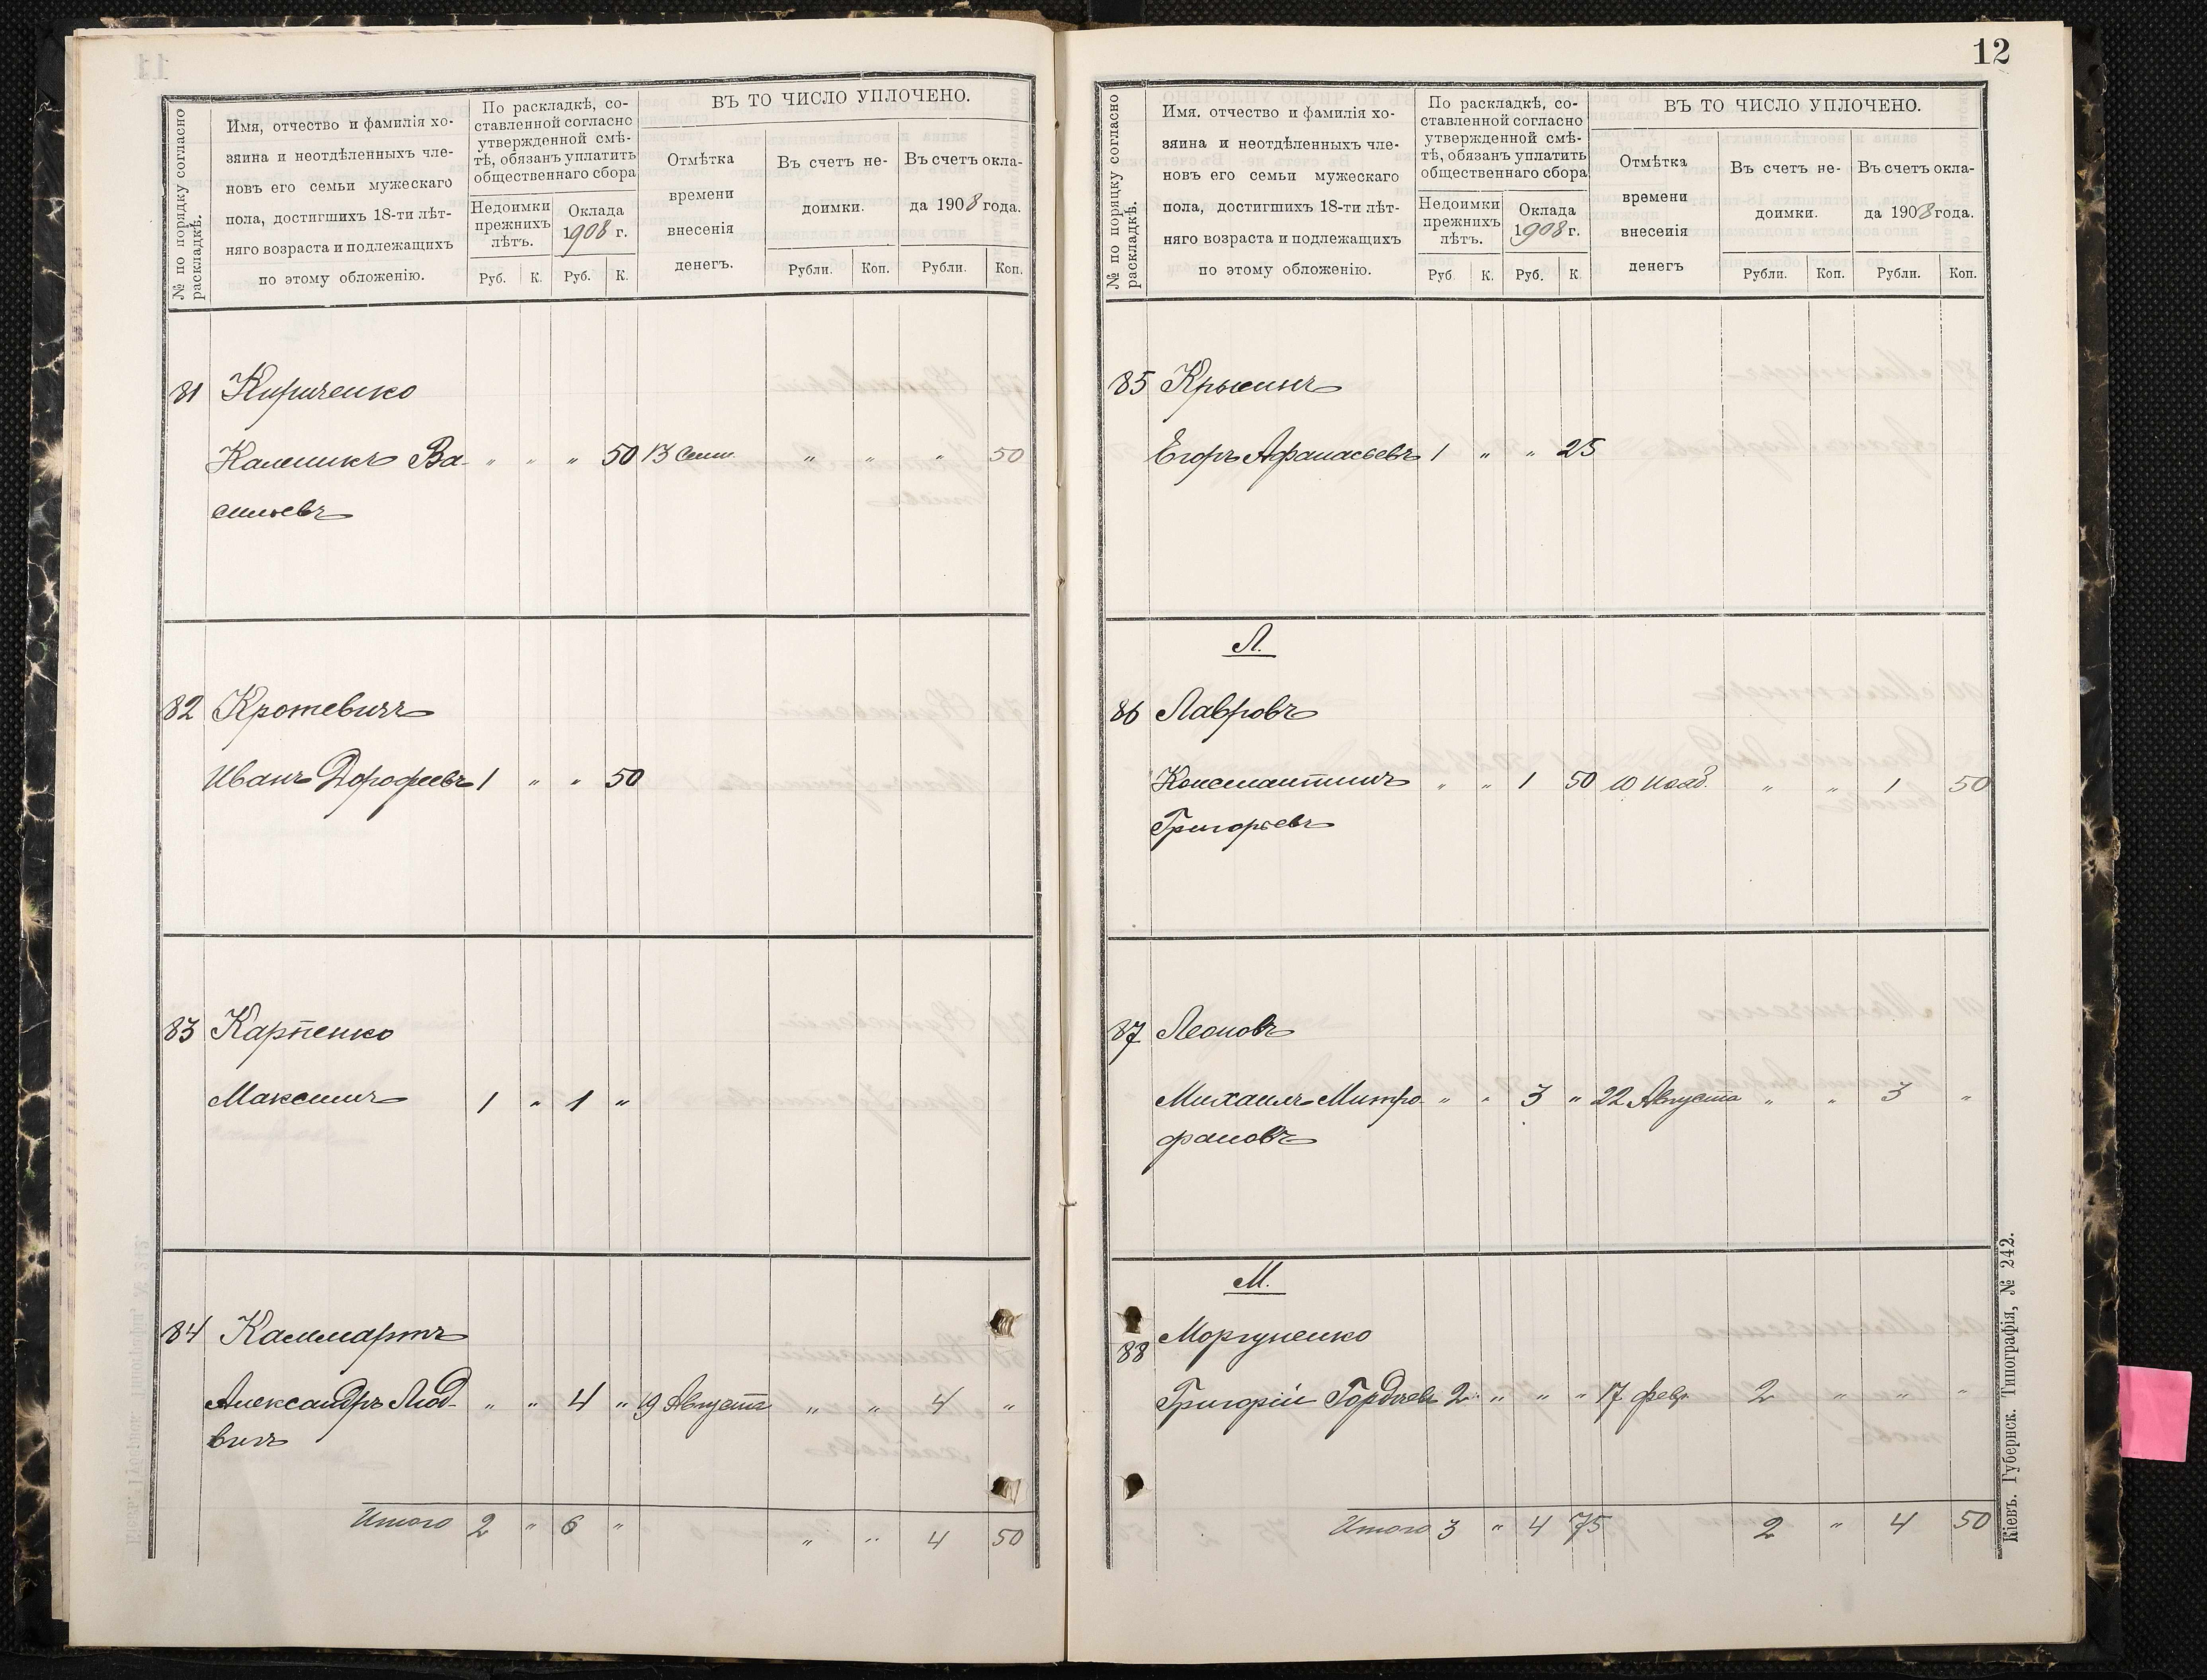 12
№ по порядку согласно раскладкѣ.
Имя, отчество и фамилія хо-
зяина и неотдѣленныхъ чле-
новъ его семьи мужескаго
пола, достигшихъ 18-ти лѣт-
няго возраста и подлежащихъ
по этому обложенію.
По раскладкѣ, со-
ставленной согласно
утвержденной смѣ-
тѣ, обязанъ уплатить
общественнаго сбора
Недоимки
прежнихъ
лѣтъ.
Оклада
1908 г.
Руб. К. Руб. К.
ВЪ ТО ЧИСЛО УПЛОЧЕНО.
Отмѣтка
времени
внесенія
денегъ.
Въ счетъ не-
доимки.
Въ счетъ окла-
да 1908 года.
Рубли. Коп. Рубли. Коп.
81 Кириченко
Каленикъ Ва- " " " 50 13 Сент. " " " 50
сильевъ
82 Кротевичъ
Иванъ Дорофеевъ 1 " " 50
83 Карпенко
Максимъ 1 " 1 "
84 Каммартъ
Александръ Люд- " " 4 " 19 Августа " " 4 "
вигъ
Итого 2 " 6 " " " 4 50
№ по порядку согласно раскладкѣ.
Имя. отчество и фамилія хо-
зяина и неотдѣленныхъ чле-
новъ его семьи мужескаго
пола, достигшихъ 18-ти лѣт-
няго возраста и подлежащихъ
по этому обложенію.
По раскладкѣ, со-
ставленной согласно
утвержденной смѣ-
тѣ, обязанъ уплатить
общественнаго сбора
Недоимки
прежнихъ
лѣтъ.
Оклада
1908 г.
Руб. К. Руб. К.
ВЪ ТО ЧИСЛО УПЛОЧЕНО.
Отмѣтка
времени
внесенія
денегъ
Въ счетъ не-
доимки.
Въ счетъ окла-
да 1908 года.
Рубли. Коп. Рубли. Коп.
85 Крысинъ
Егоръ Афанасьевъ 1 " " 25
Л.
86 Лавровъ
Константинъ " " 1 50 10 Нояб. " " 1 50
Григорьевъ
87 Леоновъ
Михаилъ Митро- " " 3 " 22 Августа " " 3 "
фановъ
М.
88 Моргуненко
Григорій Гордѣевъ 2 " " " 17 февр. 2 " " "
Итого 3 " 4 75 2 " 4 50
Кіевъ. Губернск. Типографія, № 242.